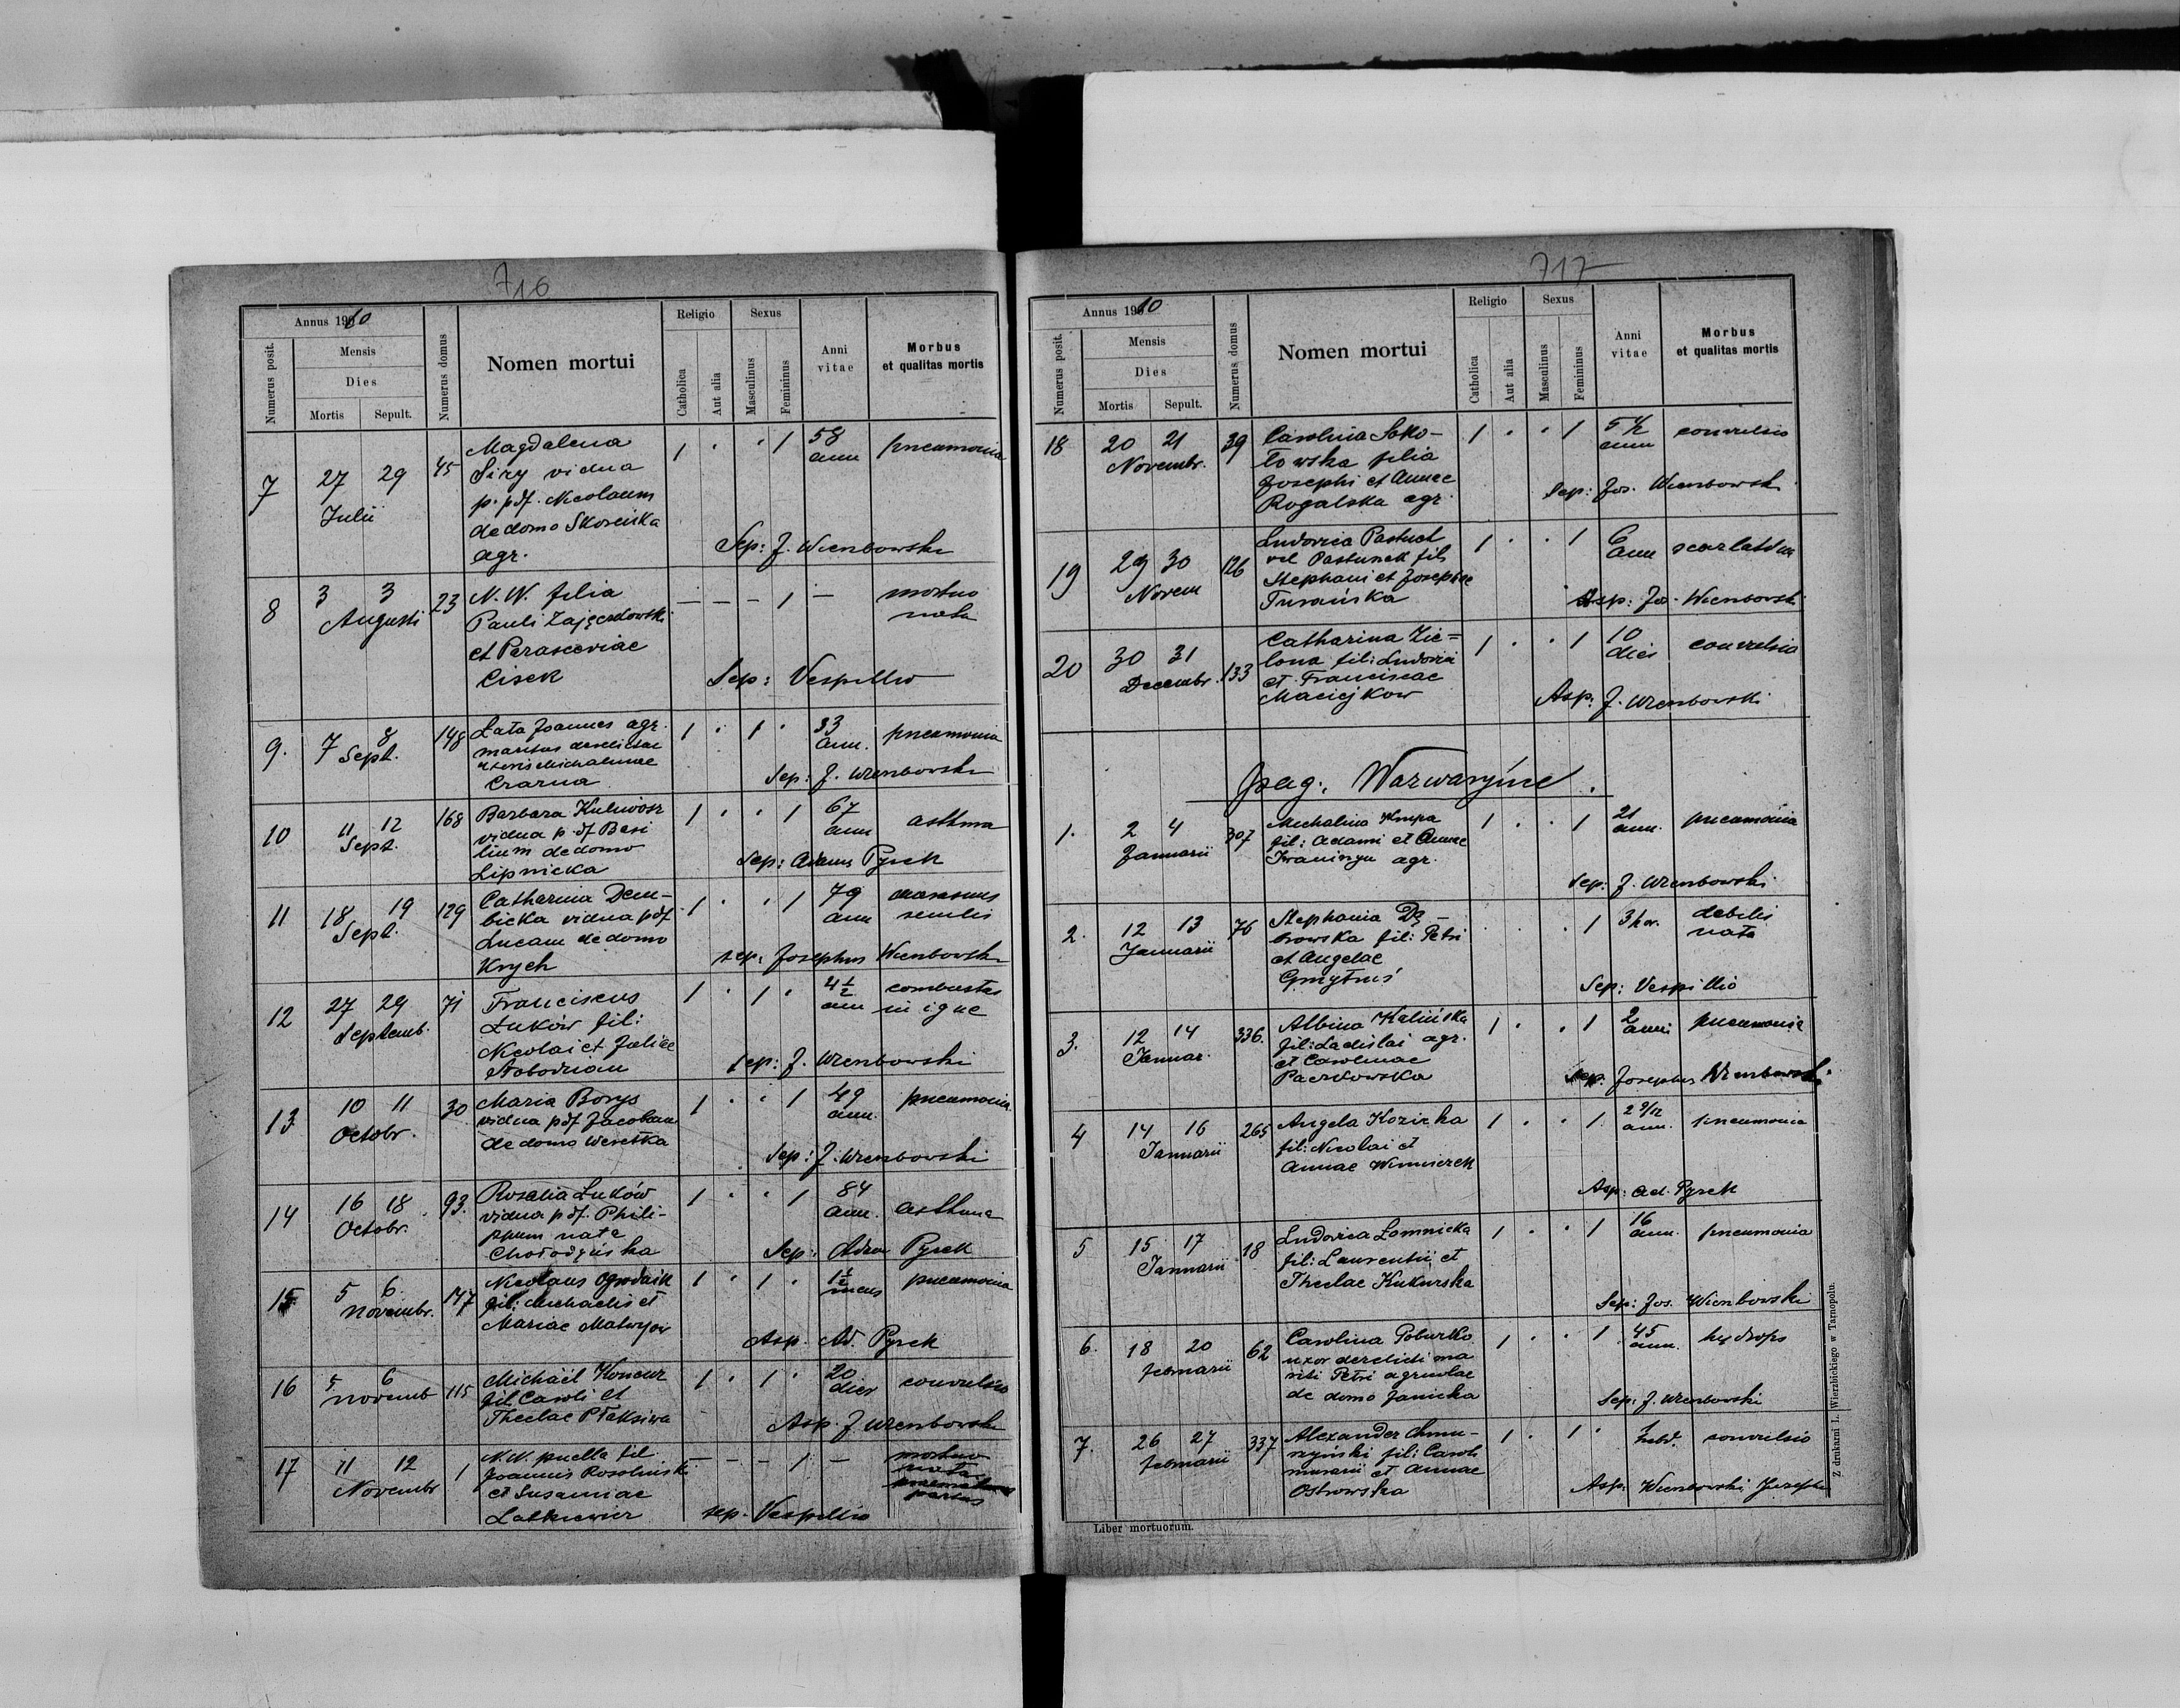 716
Annus 1910
Numerus posit.
Mensis
Dies
Mortis
Sepult.
Numerus domus
Nomen mortui
Religio
Catholica
Aut alia
Sexus
Masculinus
Femininus
Anni vitae
Morbus
et qualitas mortis
7 27 29 Julii 45 Magdalena 1 . . 1 58 ann pneumonia
Siry vidua
p. pdf. Nicolaum
de domo Skorciska
agr.
Sep: J. Wrenbowski
8 3 3 Augusti 23 N. N. filia — — — 1 — mortuo nata
Pauli Zajączkowski
et Parasceviae
Cisek
Sep: Vespillo
9. 7 8 Sept. 148 Lata Joannes agr. 1 . 1 . 33 ann. pneumonia
maritus derelictae
uxoris Michalinae
Czarna
Sep: J. Wrenbowski
10 11 12 Sept. 168 Barbara 1 . . 1 67 ann asthma
vidua p. df Basi
lium de domo
Lipnicka
Sep: Adamus Pyrek
11 18 19 Sept. 129 Catharina Dem- 1 . . 1 79 ann marasmus senilis
bicka vidua pdf
Lucam de domo
Krych
sep: Josephus Wrenbowski
12 27 29 Septemb. 71 Franciscus 1 . 1 . 4 1/2 ann combustus in igne
Łuków fil:
Nicolai et Juliae
Słobodzian
sep: J. Wrenbowski
13 10 11 Octobr. 30 Maria Borys 1 . . 1 49 ann. pneumonia
vidua pdf Jacobum
de domo Weretka
Sep: J. Wrenbowski
14 16 18 Octobr. 93. Rosalia Łuków 1 . . 1 84 ann. asthma
vidua pdf. Phili-
ppum nata
Chorodyńska
Sep: Adam Pyrek
15 5 6 Novembr. 147 Nicolaus Ogrodnik 1 . 1 . 1 1/2 mens pneumonia
fil: Michaelis et
Mariae Matwijów
Asp. Ad. Pyrek
16 5 6 novemb 115 Michaël Koncur 1 . 1 . 20 dies convulsio
fil Caroli et
Theclae Płaksiwa
Asp. J Wrenbowski
17 11 12 Novembr 1 N. N. puella fil — — — 1 — mortuo nata
Joannis Rosolinski
et Susannae
Latkiewicz
sep. Vespillio
717
Annus 1910
Numerus posit.
Mensis
Dies
Mortis
Sepult.
Numerus domus
Nomen mortui
Religio
Catholica
Aut alia
Sexus
Masculinus
Femininus
Anni vitae
Morbus
et qualitas mortis
18 20 21 Novembr. 39 Carolina Soko- 1 . . 1 5 1/2 ann convulsio
łowska filia
Josephi et Annae
Rogalska agr.
Sep: Jos. Wrenbowski
19 29 30 Novem 126 Ludovica Pastuch 1 . . 1 6 ann scarlatina
vel Pastuszek fil
Stephani et Josephae
Turańska
Asp: Jos. Wrenbowski
20 30 31 Decembr. 133 Catharina Zie= 1 . . 1 10 dies convulsio
lona fil: Ludovici
et Franciscae
Maciejkow
Asp. J. Wrenbowski
pag. Warwaryńce.
1. 2 4 Januarii 307 Michalina Krupa 1 . . 1 21 ann. pneumonia
fil: Adami et Annae
agr.
Sep: J. Wrenbowski
2. 12 13 Januarii 76 Stephania Dą- . . . 1 3 hor. debilis nata
browska fil: Petri
et Angelae
Gmytruś
Sep: Vespillio
3. 12 14 Januar. 336. Albina Kalińska 1 . . 1 2 anni pneumonia
fil: Ladislai agr.
et Carolinae
Paczkowska
Sep. Josephus Wrenbowski
4 14 16 Januarii 265 Angela Kozicka 1 . . 1 2 9/12 ann. pneumonia
fil: Nicolai et
Annae Winniczek
Asp: Ad. Pyrek
5 15 17 Januarii 18 Ludovica Łomnicka 1 . . 1 16 ann. pneumonia
fil: Laurentii et
Theclae Kukurska
Sep: Jos. Wrenbowski
6. 18 20 februarii 62 Carolina Poburko 1 . . 1 45 ann. hydrops
uxor derelicti ma
riti Petri agricolae
de domo Janicka
Sep: J. Wrenbowski
7. 26 27 februarii 337 Alexander Chmu- 1 . 1 . 7 hebd. convulsio
rzyński fil: Caroli
murarii et Annae
Ostrowska
Asp. Wrenbowski Joseph
Liber mortuorum.
Z drukarni L. Wierzbickiego w Tarnopolu.